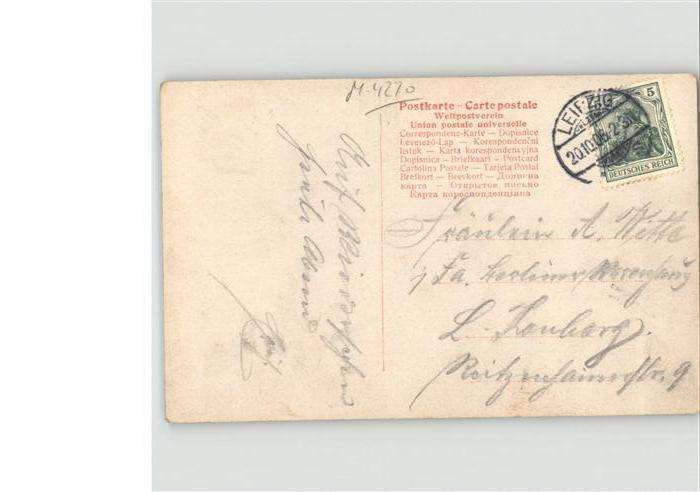 M-4270
Postkarte – Carte postale
Weltpostverein
Union postale universelle
Correspondenz-Karte — Dopisnice
Levelező-Lap — Korespondenční
lístek — Karta korespondencyjna
Dopisnica — Briefkaart — Postcard
Cartolina Postale — Tarjeta Postal
Brefkort — Brevkort — Дописна
карта — Открытое письмо
Карта кореспонденциiна
LEIPZIG
20.10.
5
DEUTSCHES REICH
Auf Wiedersehen
heute Abend
Fräulein A.
Fa. Berliner
L.
9